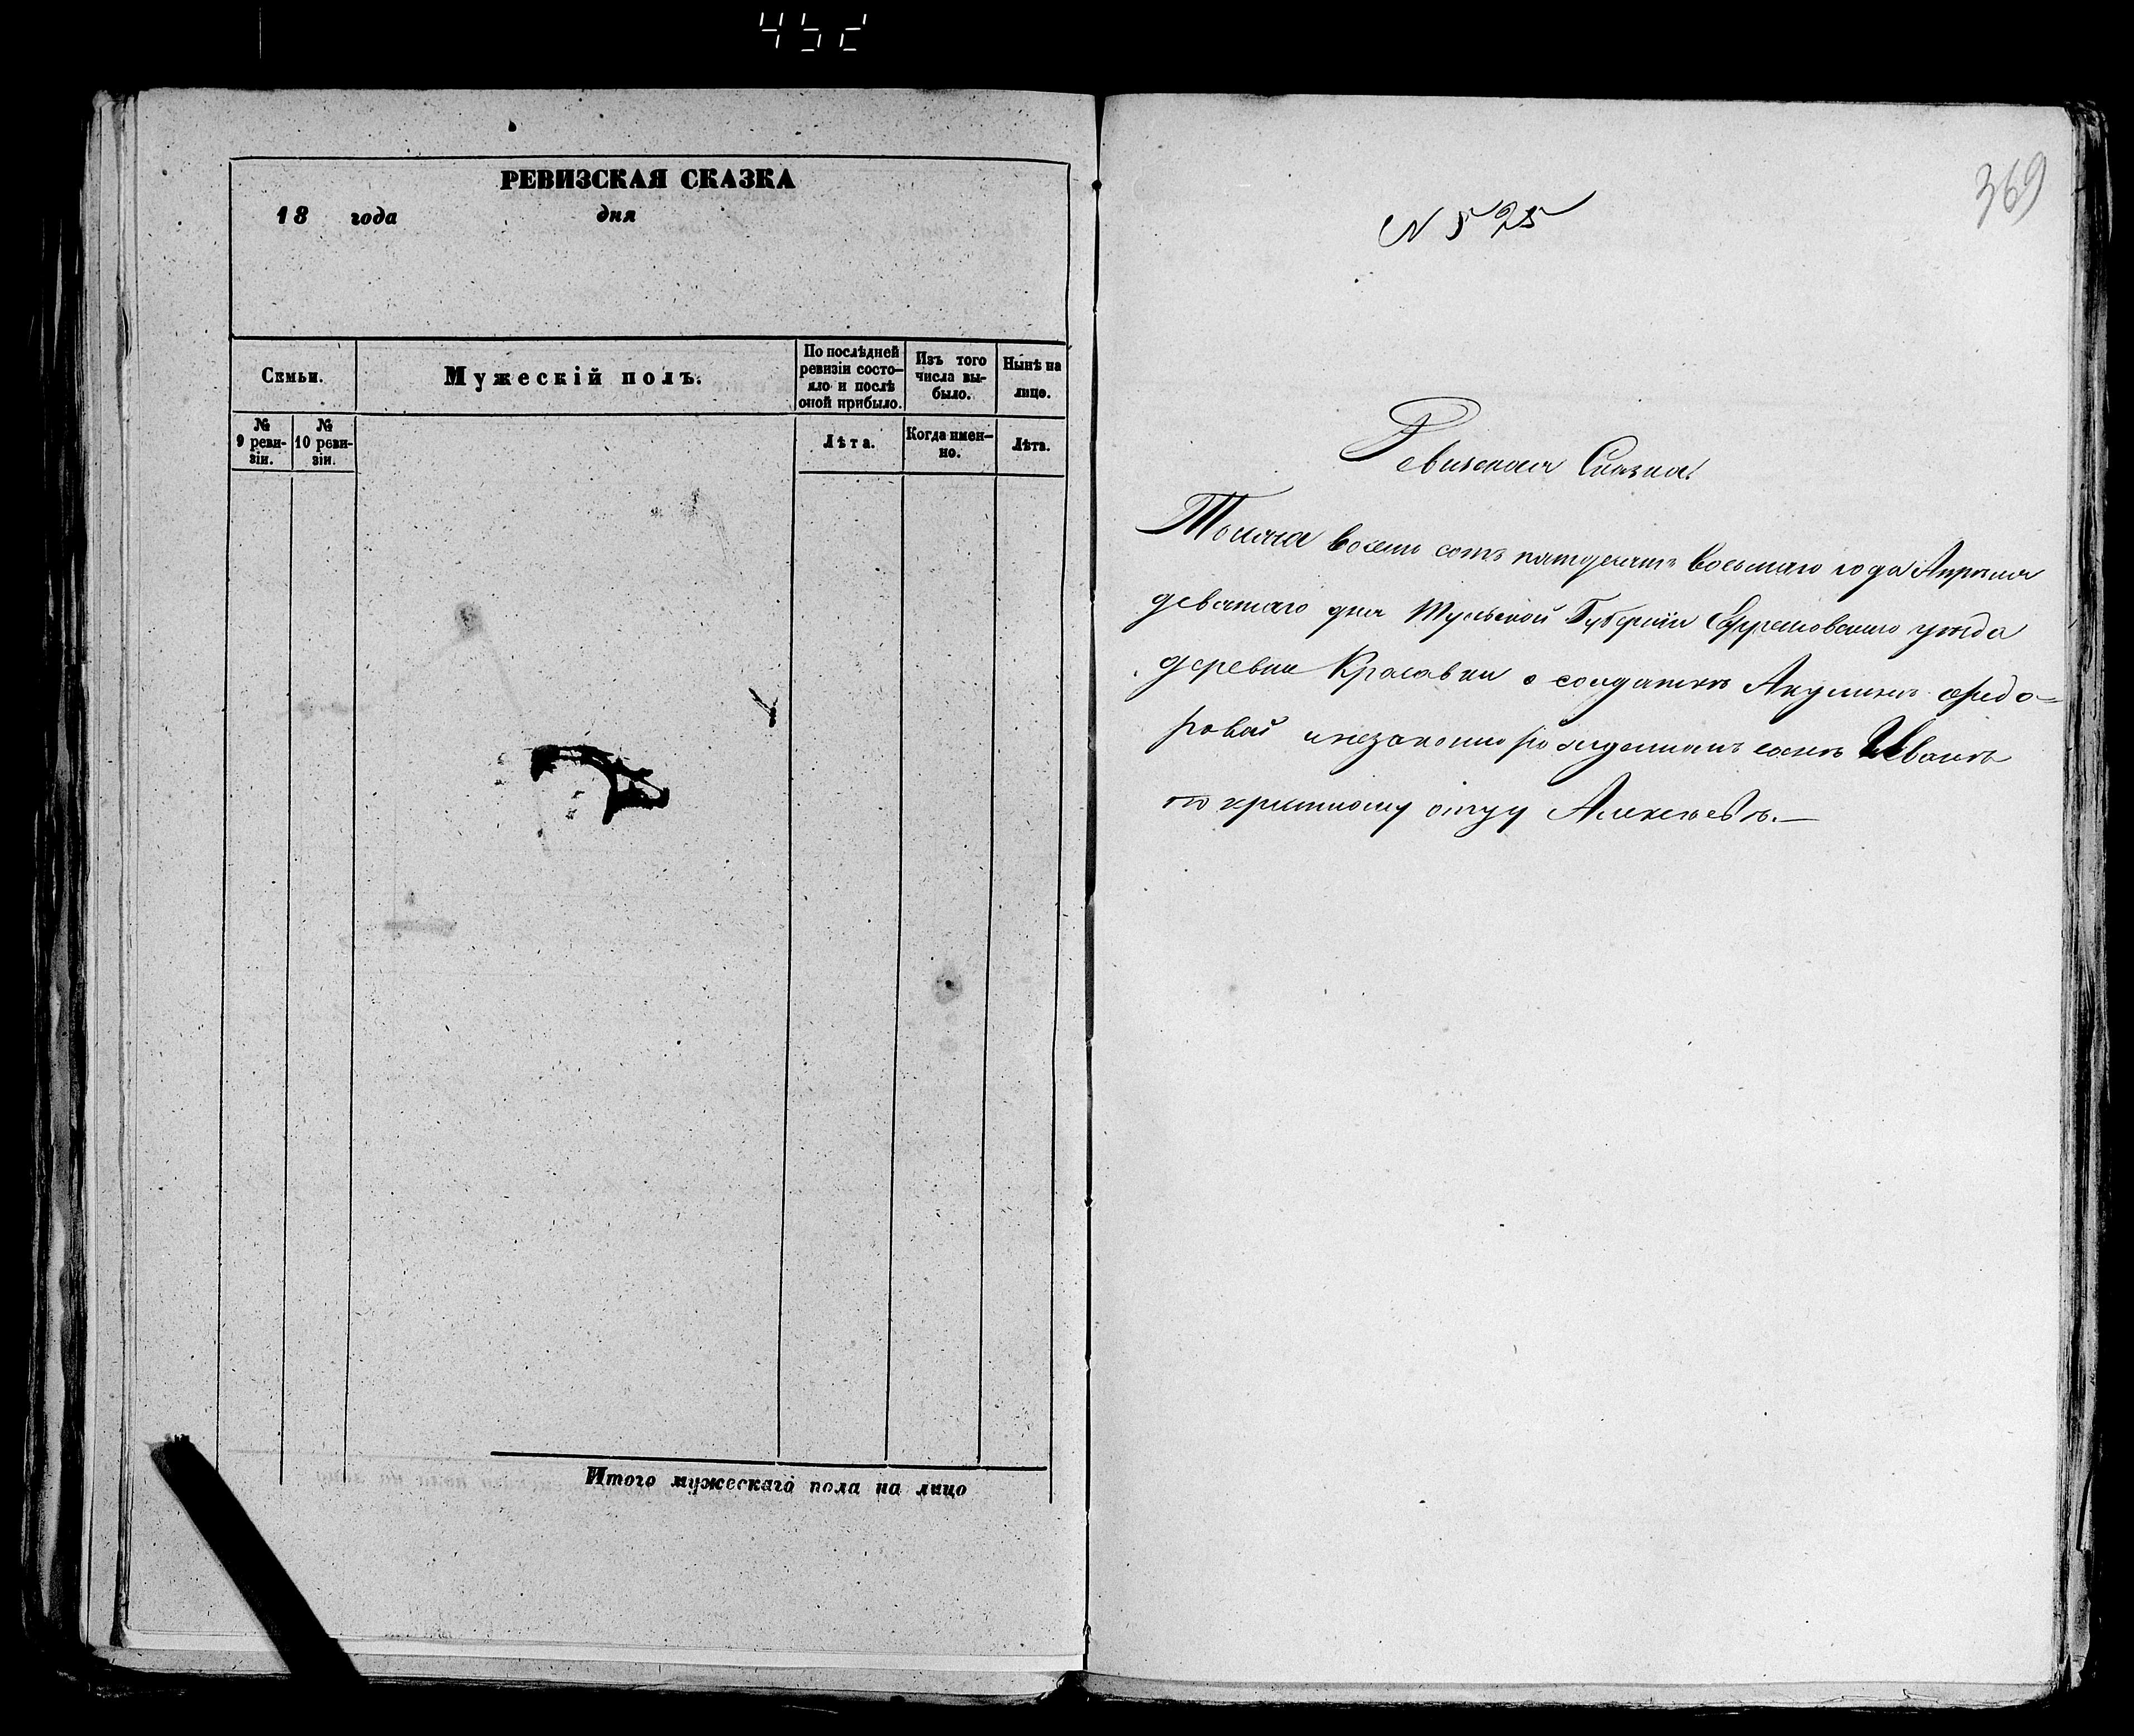 452
РЕВИЗСКАЯ СКАЗКА
18 года дня
Семьи.
Мужескій полъ.
По послѣдней
ревизіи состо-
яло и послѣ
оной прибыло.
Изъ того
числа вы-
было.
Нынѣ на
лицо.
№
9 реви-
зіи.
№
10 реви-
зіи.
Лѣта.
Когда имен-
но.
Лѣта.
Итого мужескаго пола на лицо
369
N 525
Ревизская Сказка.
Тысяча восемь сотъ пятдесятъ восьмаго года Апрѣля
девятаго дня Тульской Губерніи Ефремовскаго уѣзда
деревни Красавки о солдаткѣ Акулинѣ Федо=
ровой и незаконнорожденномъ сынѣ Иванѣ
по крестному отцу Алексѣевѣ.—